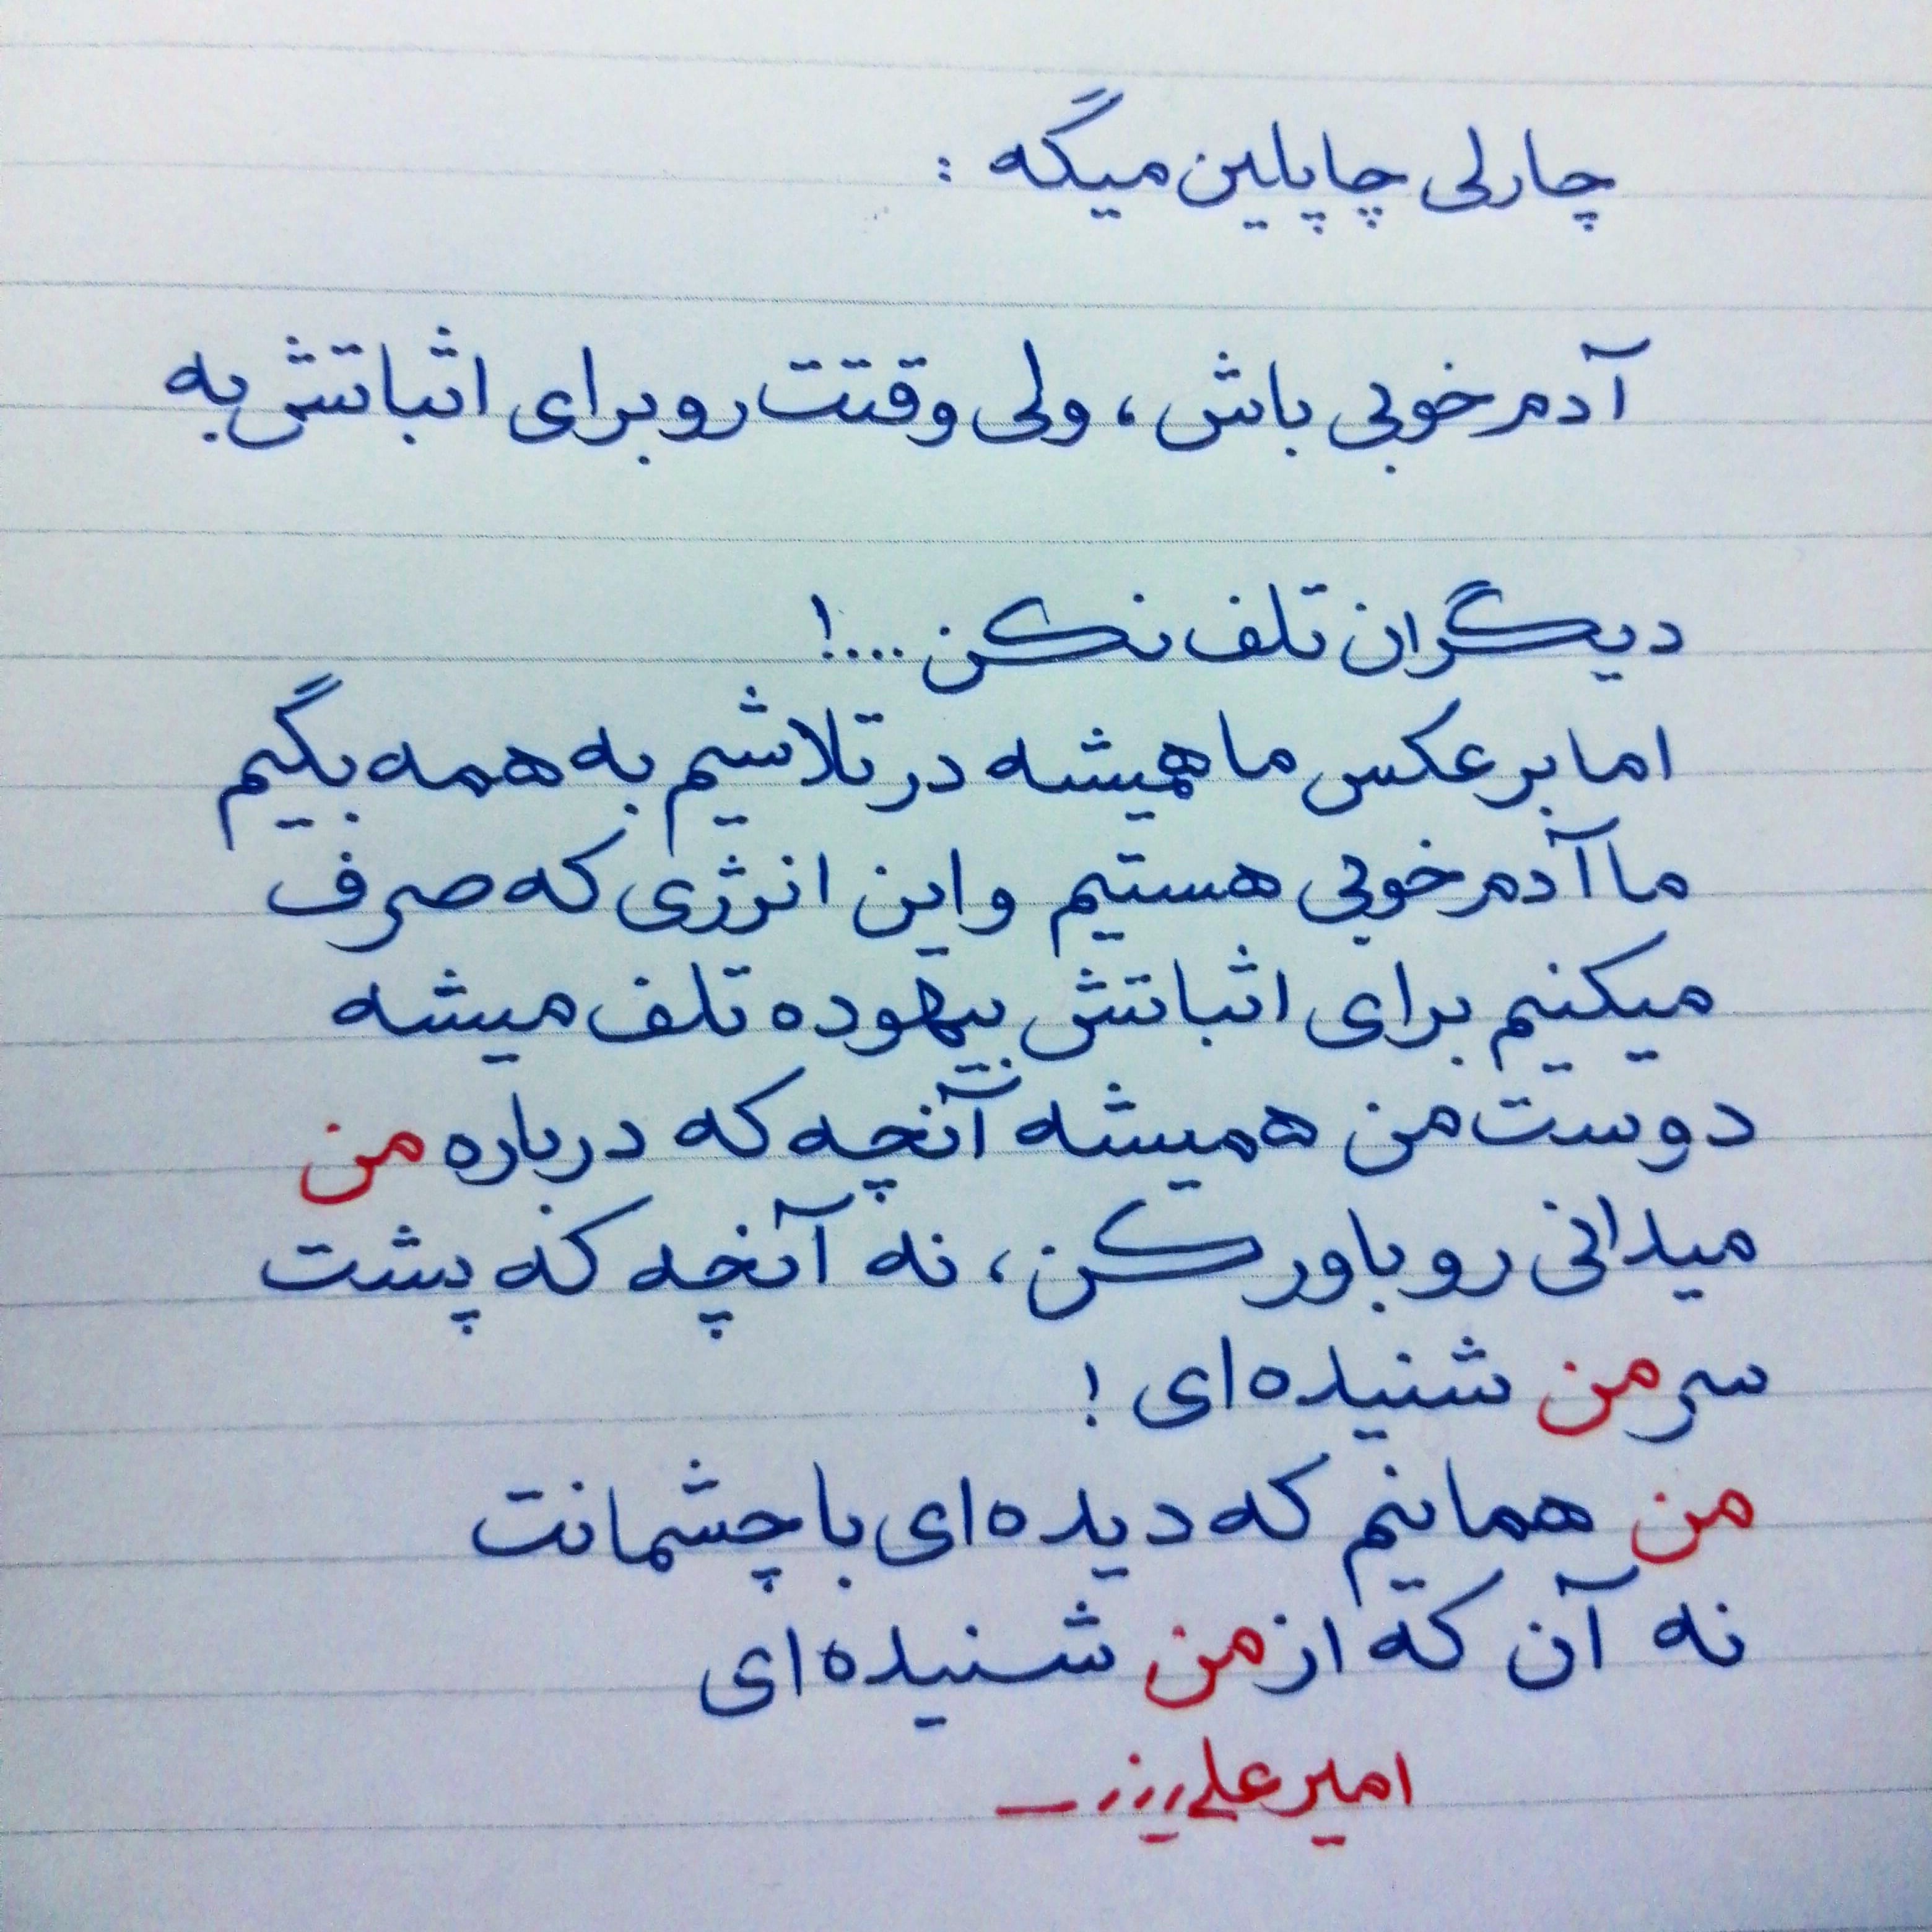 چارلی چاپلین میگه :
آدم خوبی باش، ولی وقتت رو برای اثباتش به
دیگران تلف نکن ...!
اما برعکس ما همیشه در تلاشیم به همه بگیم
ما آدم خوبی هستیم و این انرژی که صرف
میکنیم برای اثباتش بیهوده تلف میشه
دوست من همیشه آنچه که درباره من
میدانی رو باور کن، نه آنچه که پشت
سر من شنیده ای !
من همانم که دیده ای با چشمانت
نه آن که از من شنیده ای
امیرعلی